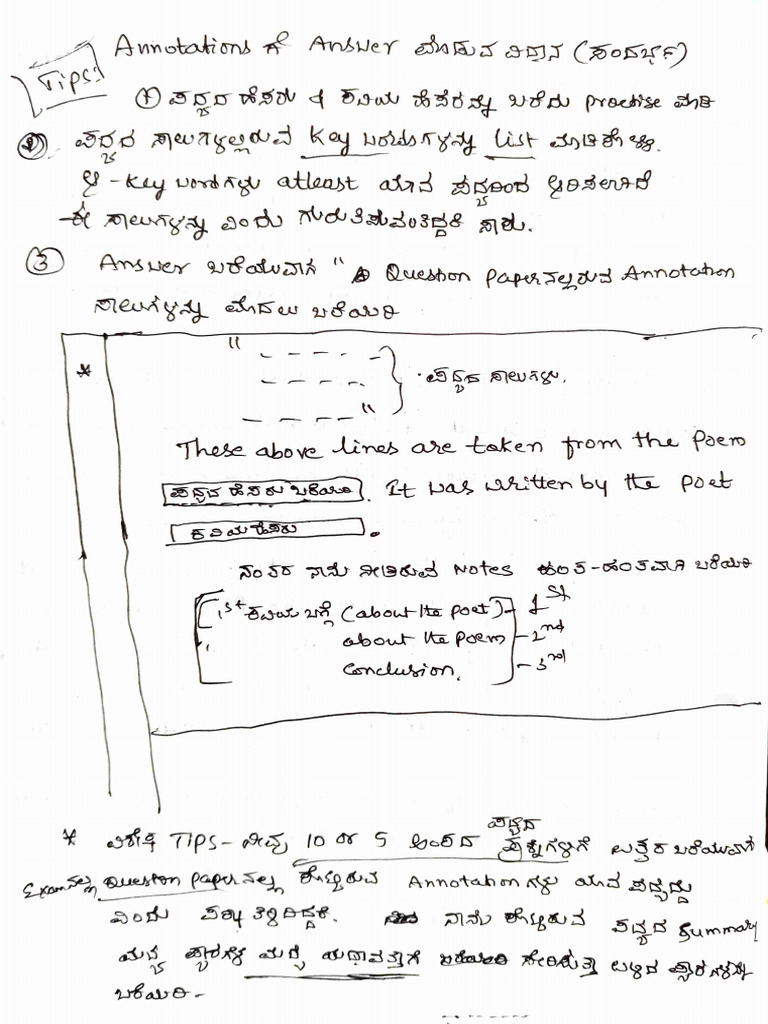 Tips:
Annotations ಗೆ Answer ಮಾಡುವ ವಿಧಾನ (ಸಂದರ್ಭ)
① ಪದ್ಯದ ಹೆಸರು & ಕವಿಯ ಹೆಸರನ್ನು ಬರೆದು Practise ಮಾಡಿ
② ಪದ್ಯದ ಸಾಲುಗಳಲ್ಲಿರುವ Key ಪದಗಳನ್ನು List ಮಾಡಿಕೊಳ್ಳಿ.
ಈ - Key ಪದಗಳು atleast ಯಾವ ಪದ್ಯದಿಂದ ಆರಿಸಲಾಗಿದೆ
ಈ ಸಾಲುಗಳನ್ನು ಎಂದು ಗುರುತಿಸುವಂತಿದ್ದರೆ ಸಾಕು.
③ Answer ಬರೆಯುವಾಗ " Question Paper ನಲ್ಲಿರುವ Annotation
ಸಾಲುಗಳನ್ನು ಮೊದಲು ಬರೆಯಿರಿ
* " - - - -
- - - - ಪದ್ಯದ ಸಾಲುಗಳು.
- - - - "
These above lines are taken from the Poem
ಪದ್ಯದ ಹೆಸರು ಬರೆಯಿರಿ. It was written by the Poet
ಕವಿಯ ಹೆಸರು.
ನಂತರ ನಾನು ನೀಡಿರುವ Notes ಹಂತ-ಹಂತವಾಗಿ ಬರೆಯಿರಿ
1st ಕವಿಯ ಬಗ್ಗೆ (about the poet) - 1st
about the poem - 2nd
Conclusion. - 3rd
* ವಿಶೇಷ TIPS - ನೀವು 10 or 5 ಅಂಕದ ಪದ್ಯದ ಪ್ರಶ್ನೆಗಳಿಗೆ ಉತ್ತರ ಬರೆಯುವಾಗ
Exam ನಲ್ಲಿ Question Paper ನಲ್ಲಿ ಕೊಟ್ಟಿರುವ Annotation ಗಳು ಯಾವ ಪದ್ಯದ್ದು
ಎಂದು ತಿಳಿದಿದ್ದರೆ. ನಾನು ಕೊಟ್ಟಿರುವ ಪದ್ಯದ Summary
ಮಧ್ಯ ಪ್ಯಾರಗಳ ಮಧ್ಯೆ ಯಥಾವತ್ತಾಗಿ ಸೇರಿಸುತ್ತಾ ಉಳಿದ ಪ್ಯಾರಗಳನ್ನು
ಬರೆಯಿರಿ -